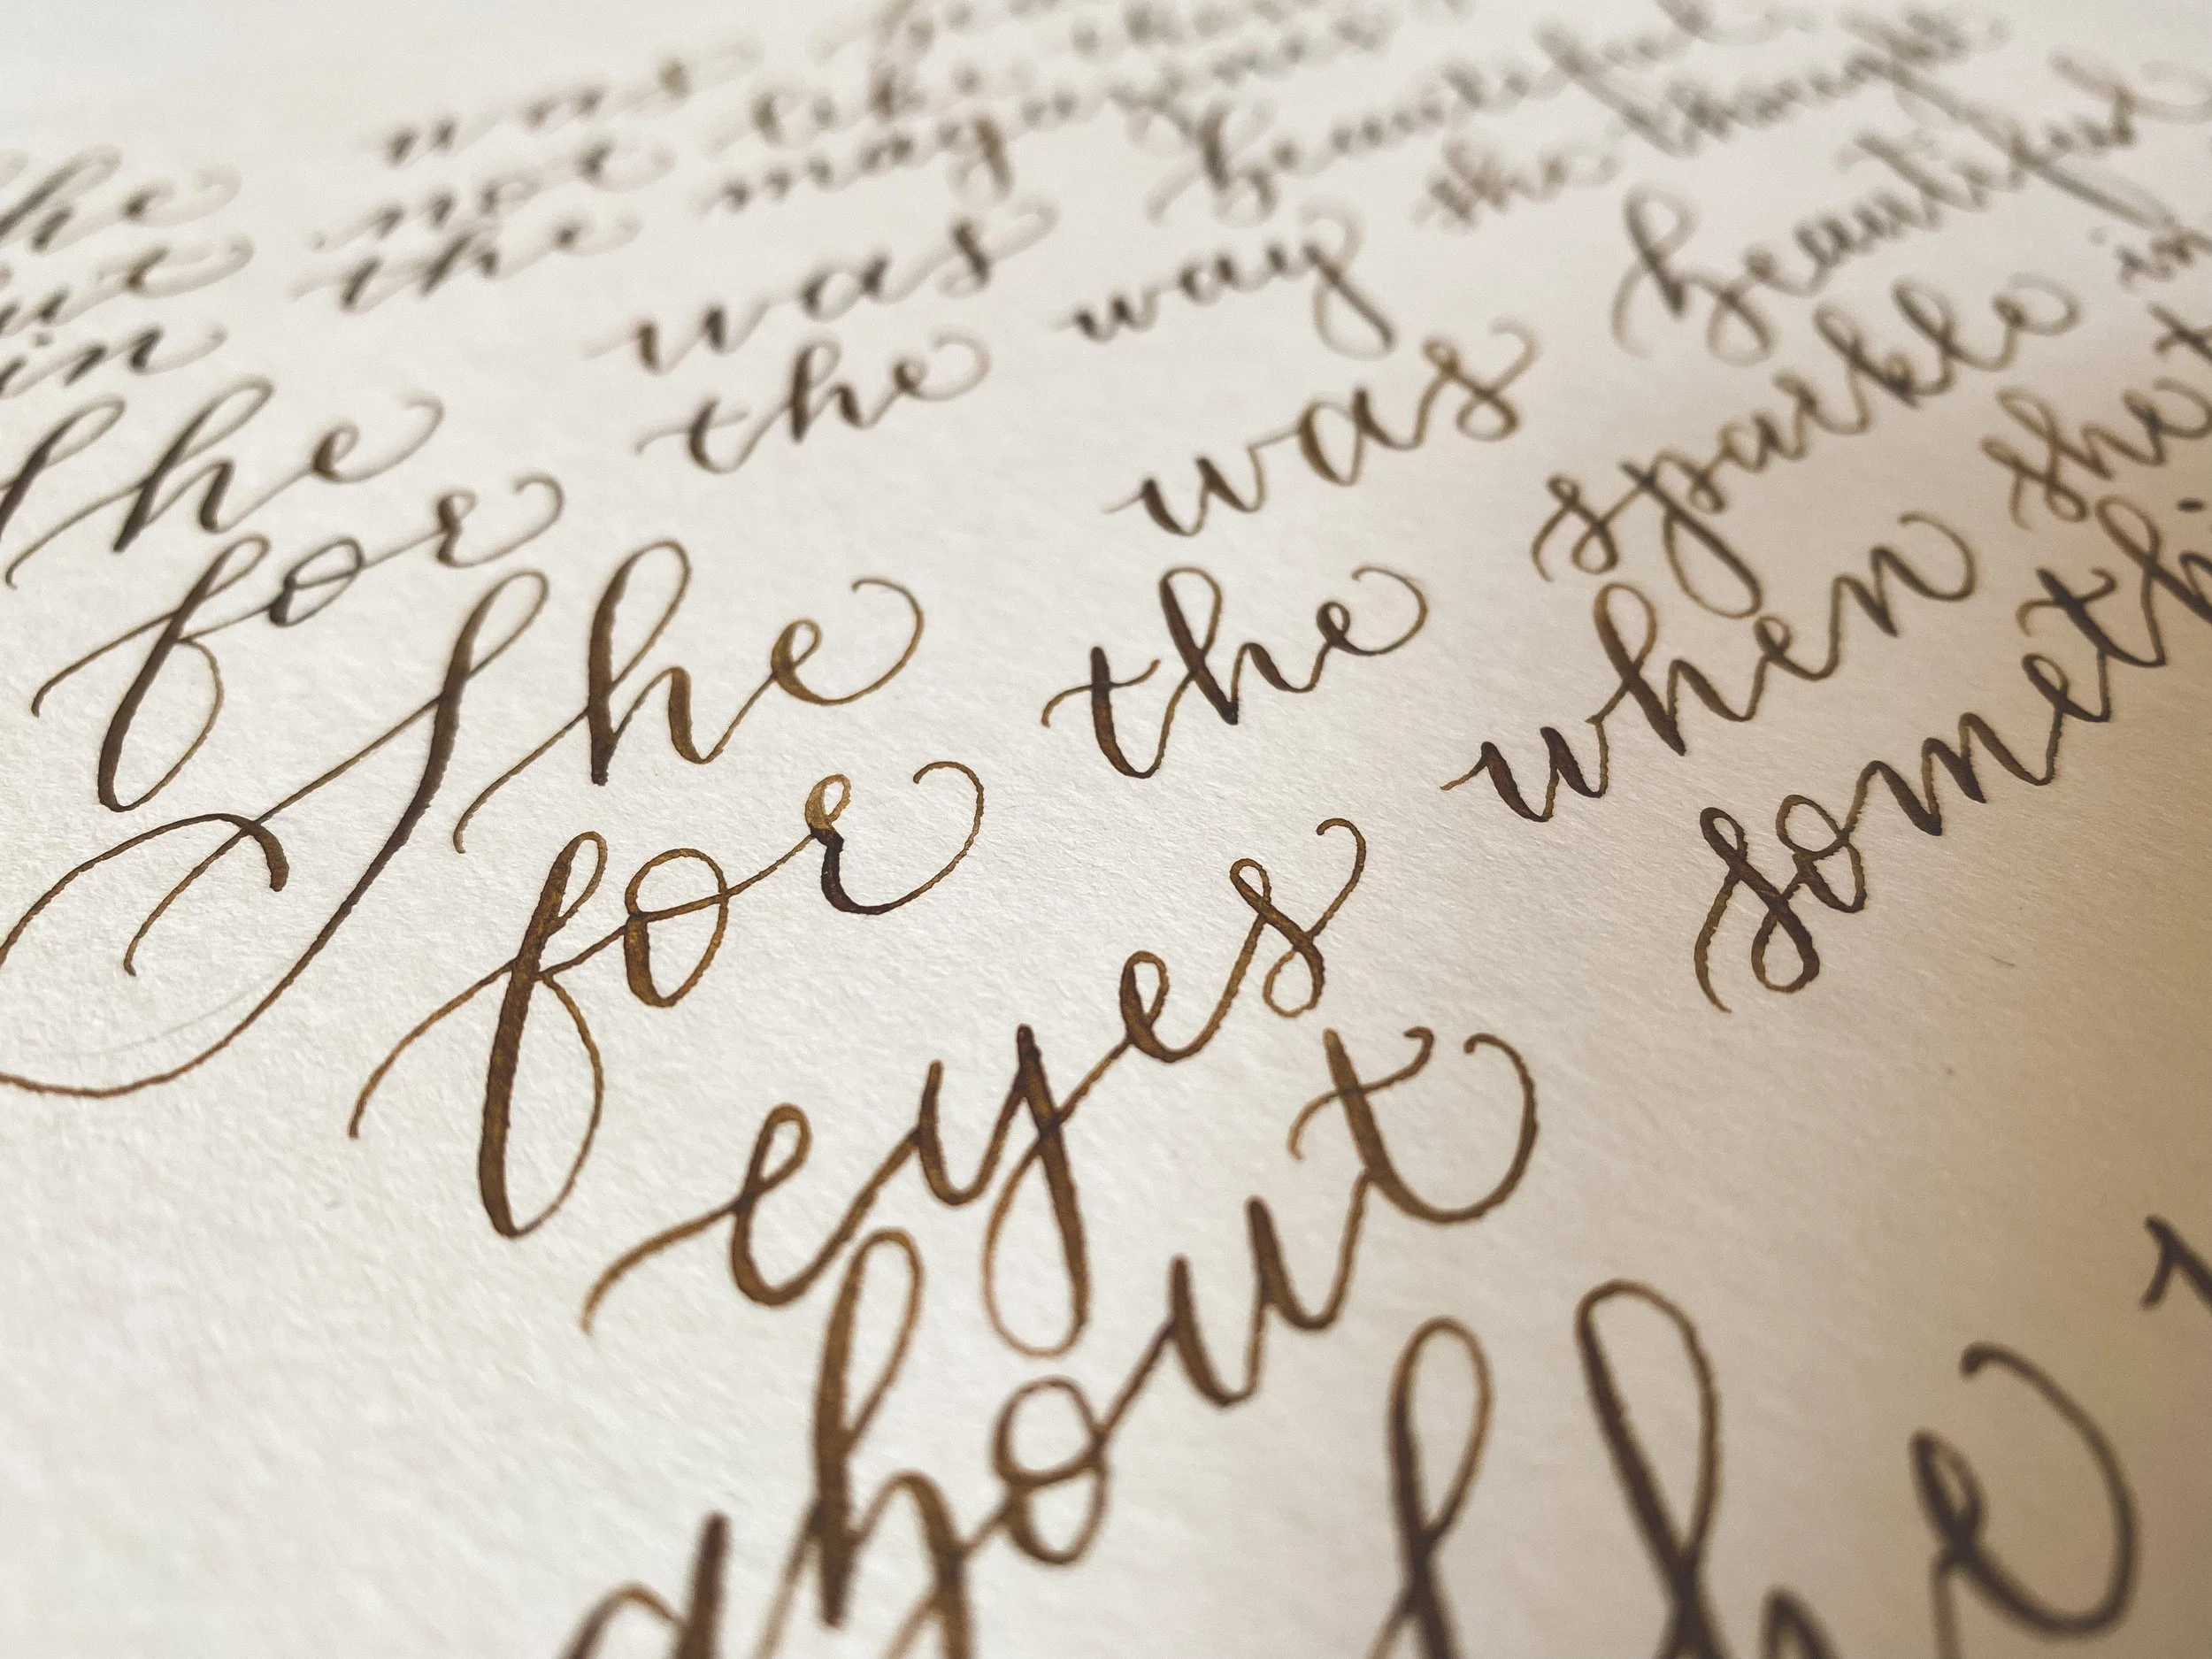 was
he not like
ut the magazines
in was beautiful
She the way she thought
for was beautiful
She the sparkle in
for eyes when she
about something
She